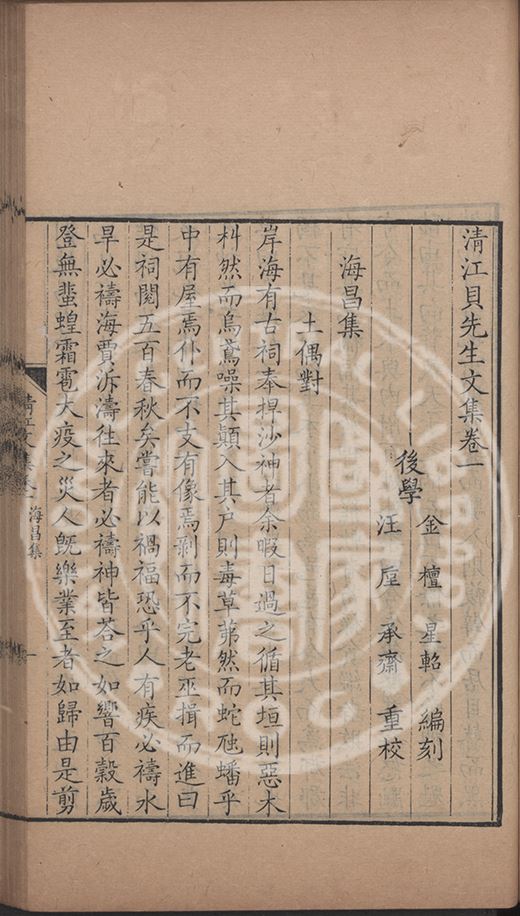 清江貝先生文集卷一
後學
金檀星軺編刻
汪垕承齋重校
海昌集
土偶對
岸海有古祠奉捍沙神者余暇日過之循其垣則惡木
朻然而烏鳶噪其顛入其戶則毒草茀然而蛇虺蟠乎
中有屋焉仆而不支有像焉剝而不完老巫揖而進曰
是祠閱五百春秋矣嘗能以禍福恐乎人有疾必禱水
旱必禱海賈泝濤往來者必禱神皆荅之如響百穀歲
登無蜚蝗霜雹大疫之災人既樂業至者如歸由是剪
清江文集卷一
海昌集
一